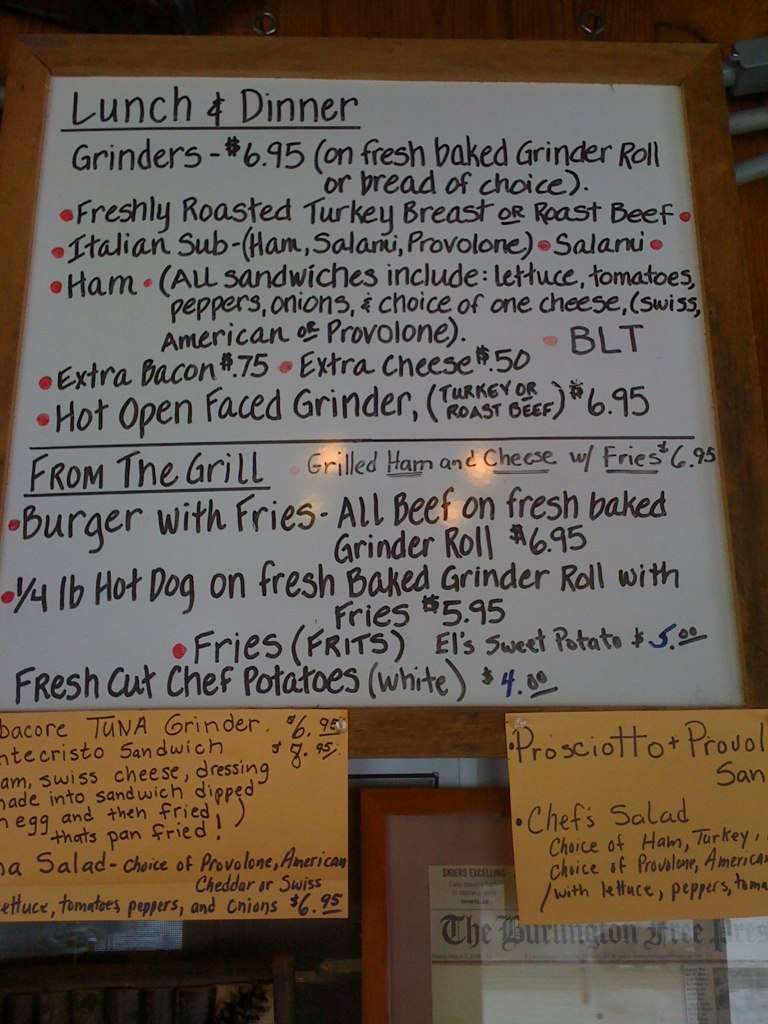 Lunch & Dinner
Grinders - $6.95 (on fresh baked Grinder Roll
or bread of choice).
• Freshly Roasted Turkey Breast or Roast Beef •
• Italian Sub - (Ham, Salami, Provolone) • Salami •
• Ham • (All sandwiches include: lettuce, tomatoes,
peppers, onions, & choice of one cheese, (swiss,
American or Provolone).
• BLT
• Extra Bacon $.75 • Extra Cheese $.50
• Hot Open Faced Grinder, (Turkey or Roast Beef) $6.95
From The Grill
• Grilled Ham and Cheese w/ Fries $6.95
• Burger with Fries - All Beef on fresh baked
Grinder Roll $6.95
• 1/4 lb Hot Dog on fresh Baked Grinder Roll with
Fries $5.95
• Fries (FRITS) El's Sweet Potato $5.00
Fresh Cut Chef Potatoes (white) $4.00
bacore TUNA Grinder. $6.95
ntecristo Sandwich $7.95
am, swiss cheese, dressing
made into sandwich dipped
n egg and then fried )
thats pan fried!
na Salad - choice of Provolone, American
Cheddar or Swiss
lettuce, tomatoes, peppers, and onions $6.95
• Prosciotto + Provol
San
• Chef's Salad
Choice of Ham, Turkey,
choice of Provolone, America
/with lettuce, peppers, toma
SKIERS EXCELLING
The Burlington Free Pres